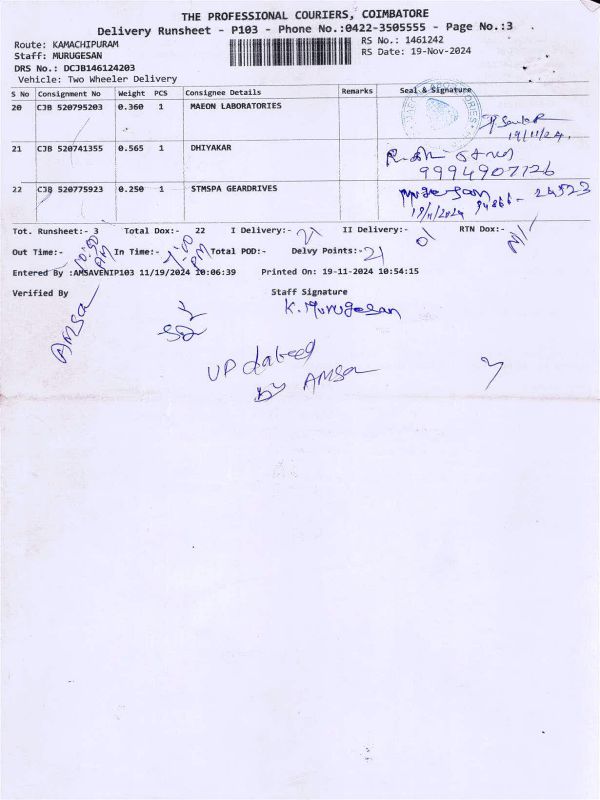 THE PROFESSIONAL COURIERS, COIMBATORE
Delivery Runsheet - P103 - Phone No.:0422-3505555 - Page No.:3
Route: KAMACHIPURAM
RS No.: 1461242
Staff: MURUGESAN
RS Date: 19-Nov-2024
DRS No.: DCJB146124203
Vehicle: Two Wheeler Delivery
S No Consignment No Weight PCS Consignee Details Remarks Seal & Signature
20 CJB 520795203 0.360 1 MAEON LABORATORIES
19/11/24.
21 CJB 520741355 0.565 1 DHIYAKAR
9994907726
22 CJB 520775923 0.250 1 STMSPA GEARDRIVES
Murugesan
19/11/2024 94866 - 24523
Tot. Runsheet:- 3 Total Dox:- 22 I Delivery:- 21 II Delivery:- 01 RTN Dox:-
Out Time:- 10:50 AM In Time:- 7:00 PM Total POD:- Delvy Points:- 21
Entered By :AMSAVENIP103 11/19/2024 10:06:39 Printed On: 19-11-2024 10:54:15
Verified By Staff Signature
AMSa K. Murugesan
UPdated
By AMSa